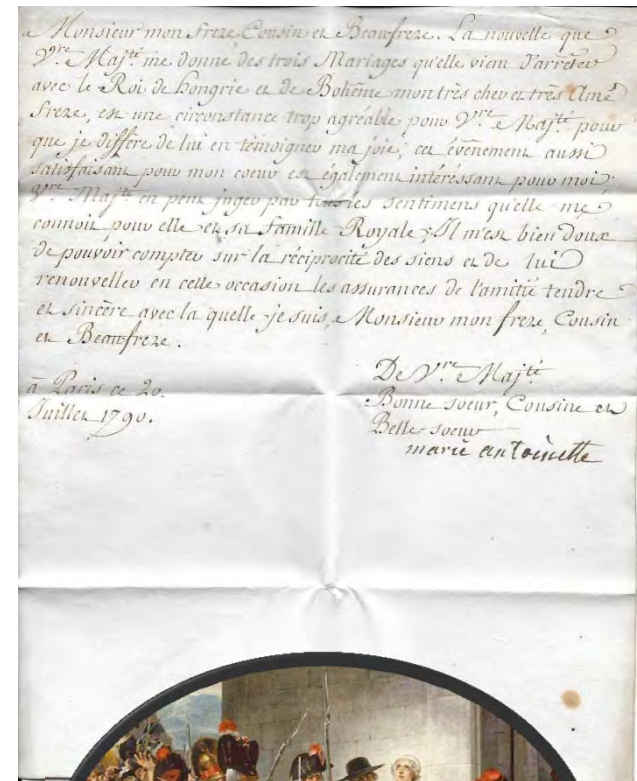 Monsieur mon frere Cousin et Beaufrere. La nouvelle que
Vre Majté me donne des trois Mariages qu'elle vien d'arrêter
avec le Roi de hongrie et de Bohême mon très cher et très Amé
frere, est une circonstance trop agréable pour Vre Majté pour
que je diffère de lui en témoigner ma joie; cet évènement aussi
satisfaisant pour mon coeur est également intéressant pour moi
Vre Majté en peut juger par tous les sentimens qu'elle me
connoit pour elle et sa famille Royale; Il m'est bien doux
de pouvoir compter sur la réciprocité des siens et de lui
renouveller en cette occasion les assurances de l'amitié tendre
et sincère avec la quelle je suis, Monsieur mon frere, Cousin
et Beaufrere.
à Paris ce 20.
Juillet 1790.
De Vre Majté
Bonne soeur, Cousine et
Belle soeur
marie antoinette